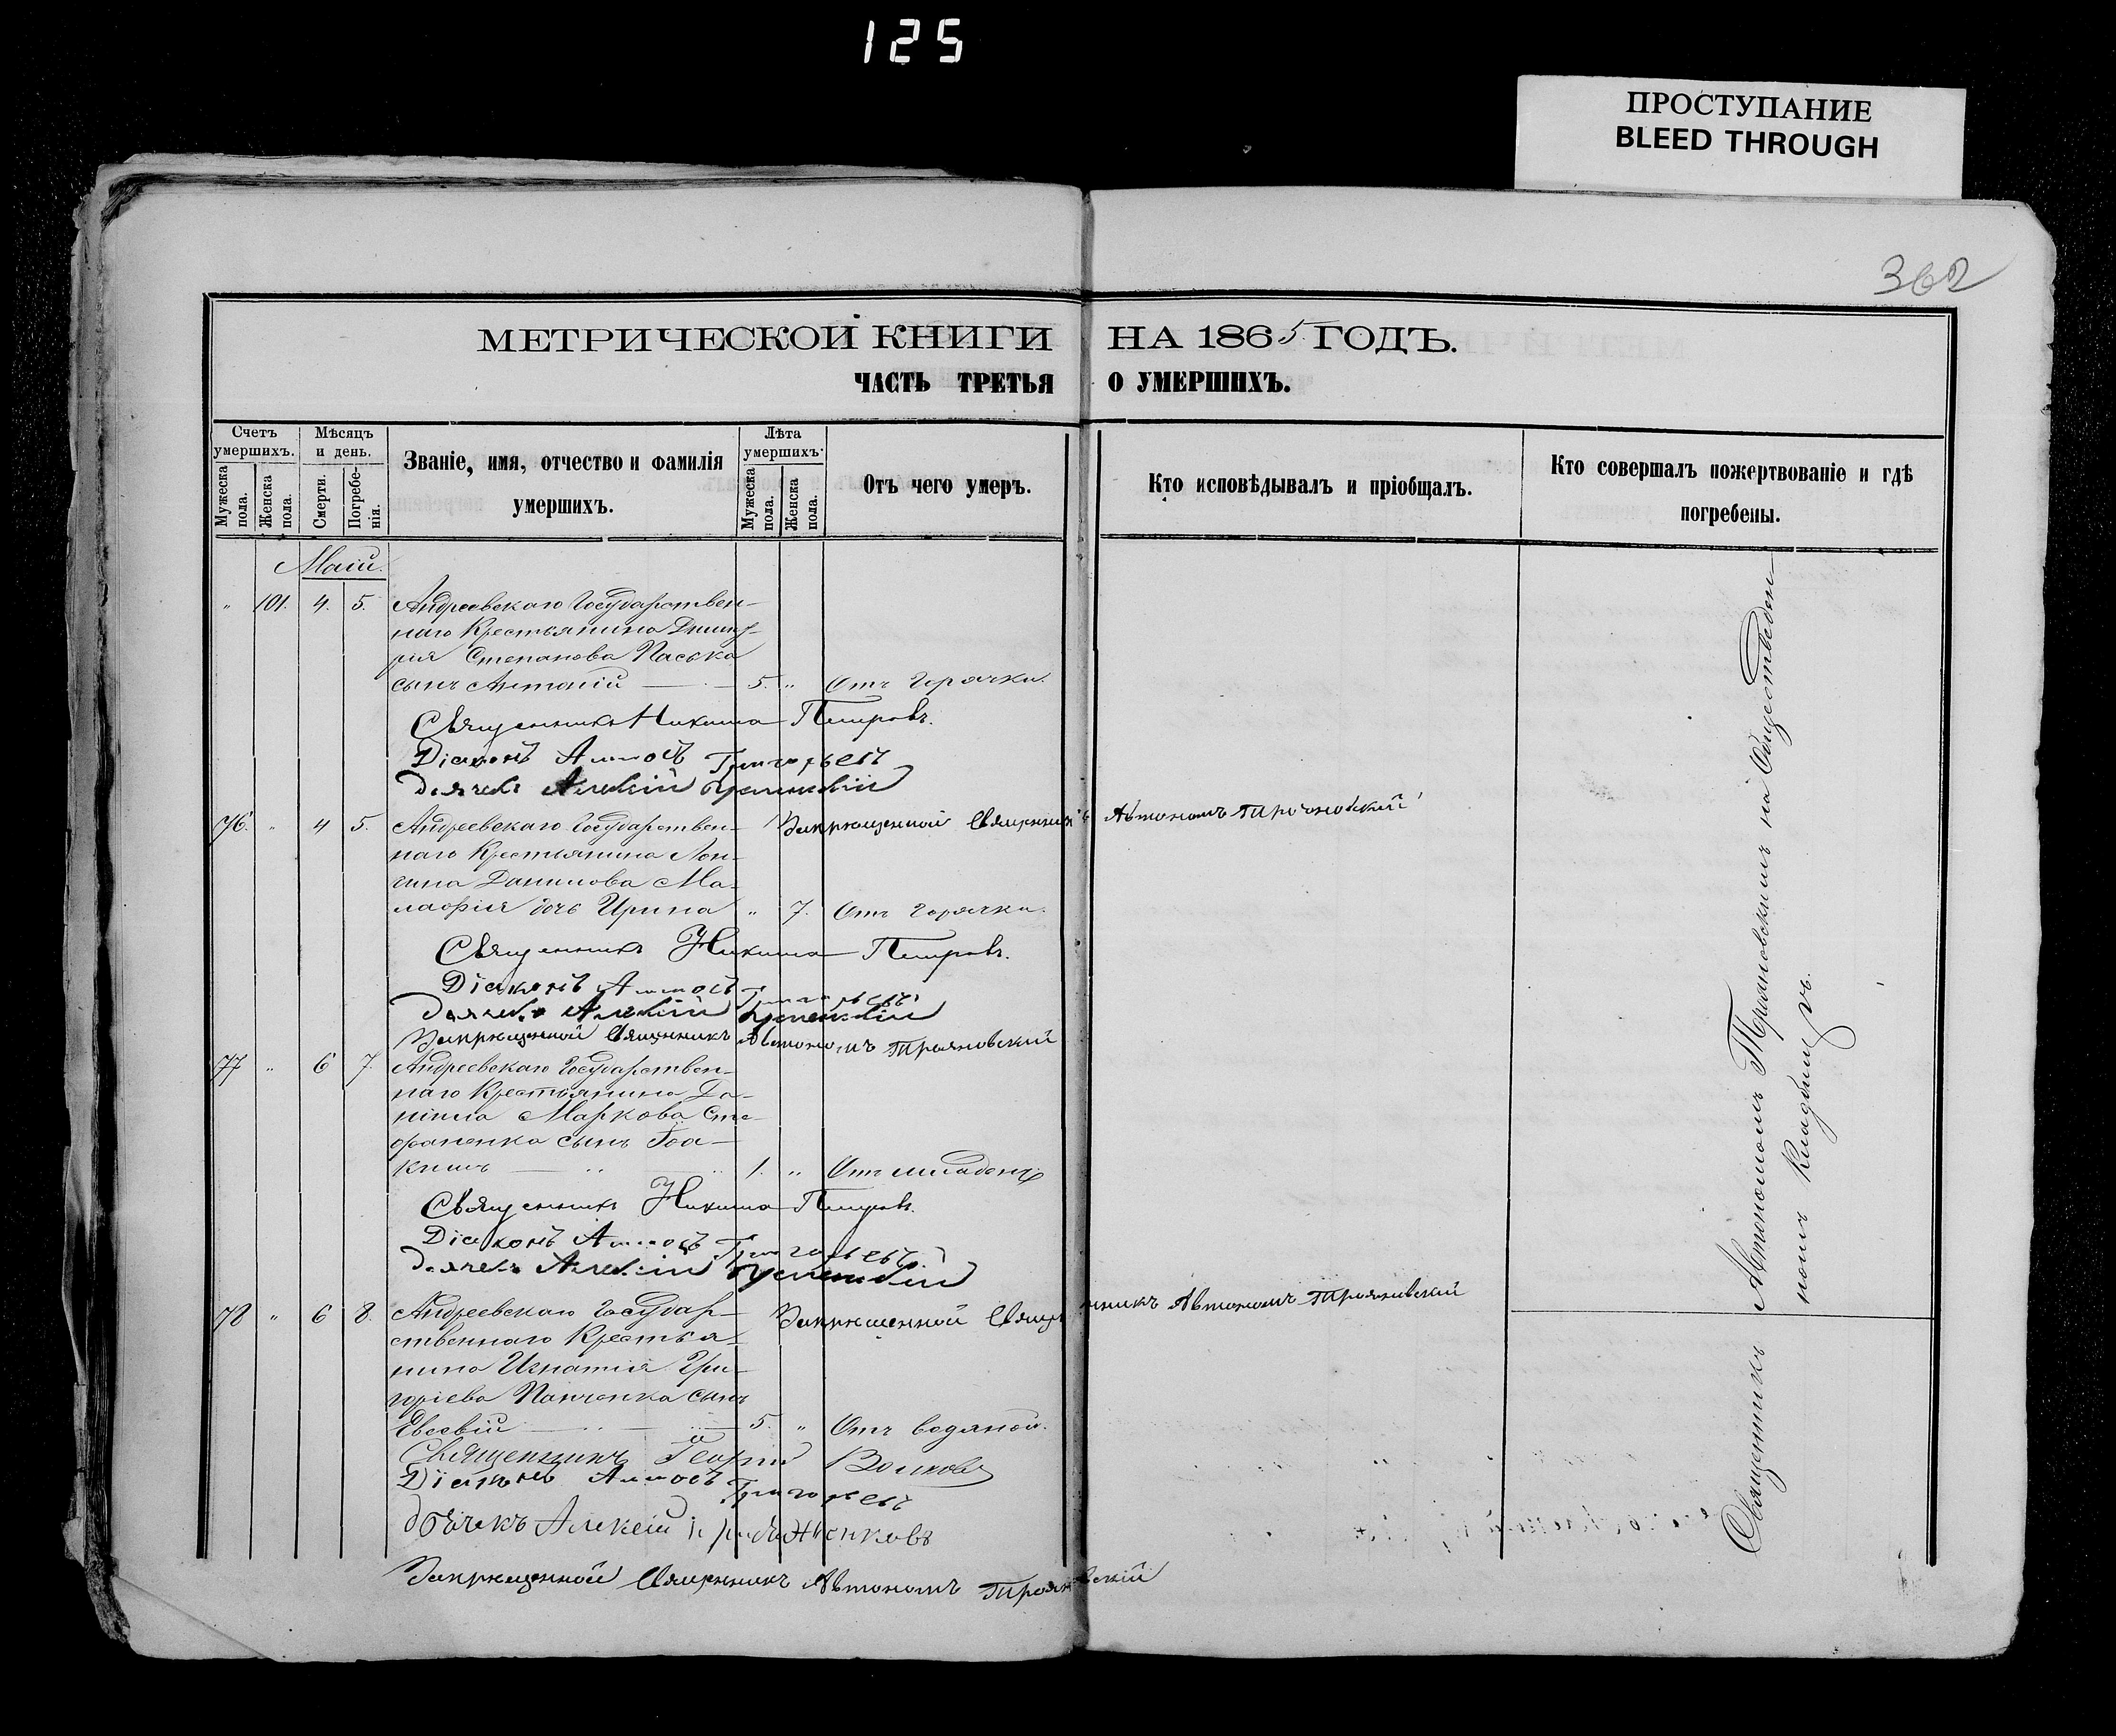 125
ПРОСТУПАНИЕ
BLEED THROUGH
362
МЕТРИЧЕСКОЙ КНИГИ НА 1865 ГОДЪ.
ЧАСТЬ ТРЕТЬЯ О УМЕРШИХЪ.
Счетъ умершихъ.
Мужеска пола.
Женска пола.
Мѣсяцъ и день.
Смерти.
Погребенія.
Званіе, имя, отчество и фамилія умершихъ.
Лѣта умершихъ.
Мужеска пола.
Женска пола.
Отъ чего умеръ.
Кто исповѣдывалъ и пріобщалъ.
Кто совершалъ пожертвованіе и гдѣ погребены.
Маій.
" 101. 4. 5. Андреевскаго Государствен-
наго Крестьянина Дмит-
рія Степанова Пасько
сынъ Антоній 5. " Отъ Горячки.
Священникъ Никита Петровъ.
Діаконъ Аммосъ Григорьевъ
дьячекъ Алексій Успенскій
Запрещенной Священникъ Автономъ Трояновскій
76. " 4 5. Андреевскаго Государствен-
наго Крестьянина Лон-
гина Данилова Ма-
лафія дочь Ирина " 7. Отъ Горячки.
Священникъ Никита Петровъ.
Діаконъ Аммосъ Григорьевъ
дьячекъ Алексій Успенскій
Запрещенной Священникъ Автономъ Трояновскій
77 " 6 7. Андреевскаго Государствен-
наго Крестьянина Да-
ніила Маркова Сте-
фаненка сынъ Іоа-
кимъ " 1. " Отъ младенч
Священникъ Никита Петровъ.
Діаконъ Аммосъ Григорьевъ.
дьячекъ Алексій Успенскій
Запрещенной Священникъ Автономъ Трояновскій
78 " 6 8. Андреевскаго Государ-
ственнаго Крестья-
нина Игнатія Гри-
горіева Панченка сынъ
Евсевій 5. " Отъ водяной.
Священникъ Георгій Волковъ
Діаконъ Аммосъ Григорьевъ
дьячекъ Алексій
Запрещенной Священникъ Автономъ Трояновскій
Священникъ Автономомъ Трояновскимъ на Общественен-
номъ Кладбищѣ.